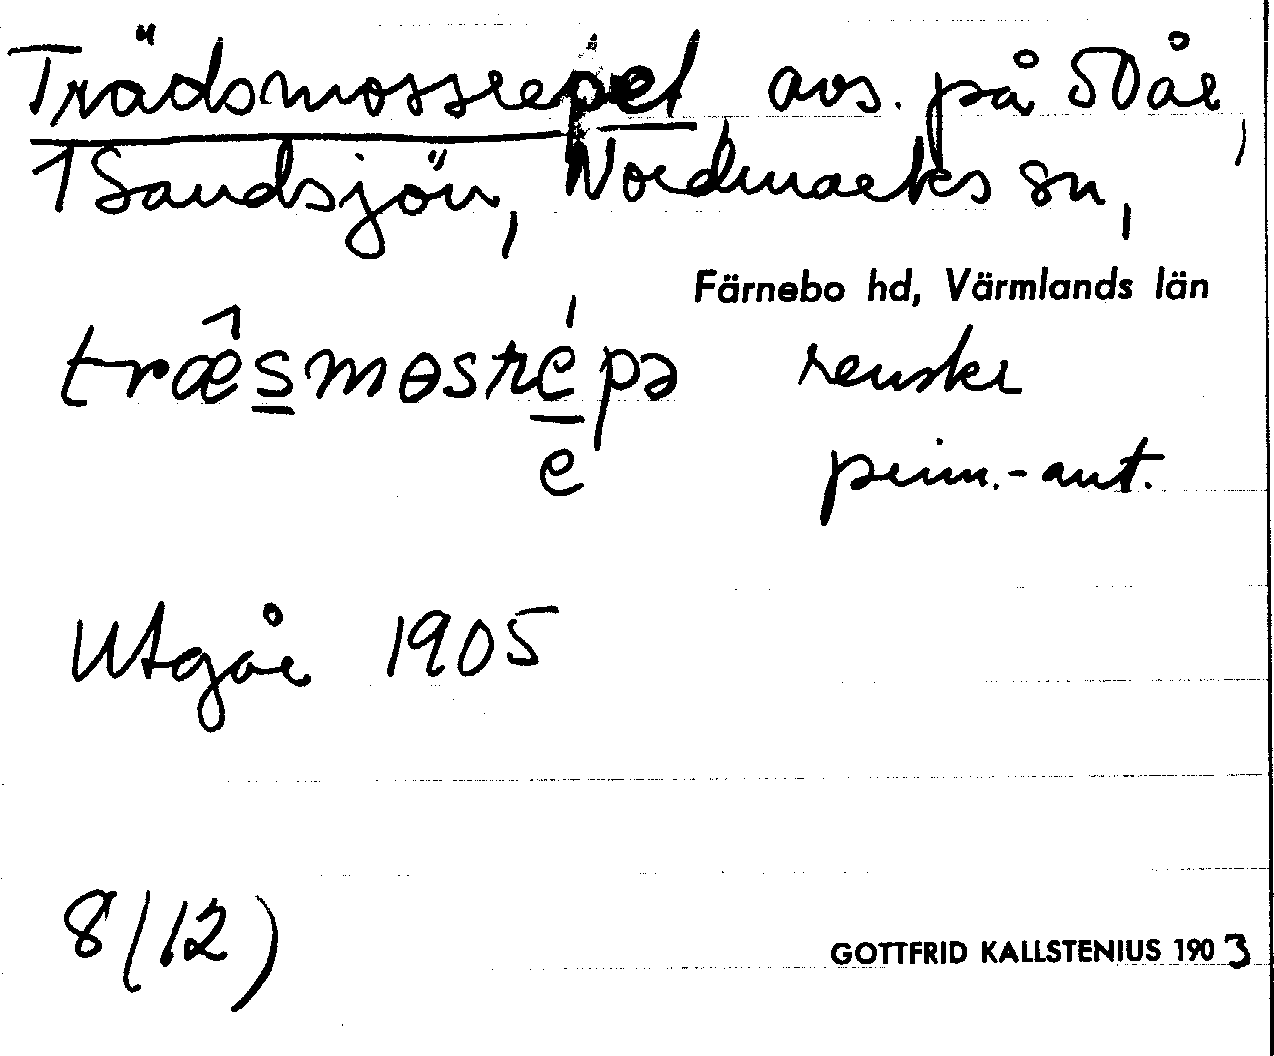 Trädsmossrepet avs. på 50 år,
1 Sandsjön, Nordmarks sn,
Färnebo hd, Värmlands län
træ̂smɵsrépə renskr
e prim.-ant.
Utgår 1905
8(12)
GOTTFRID KALLSTENIUS 1903